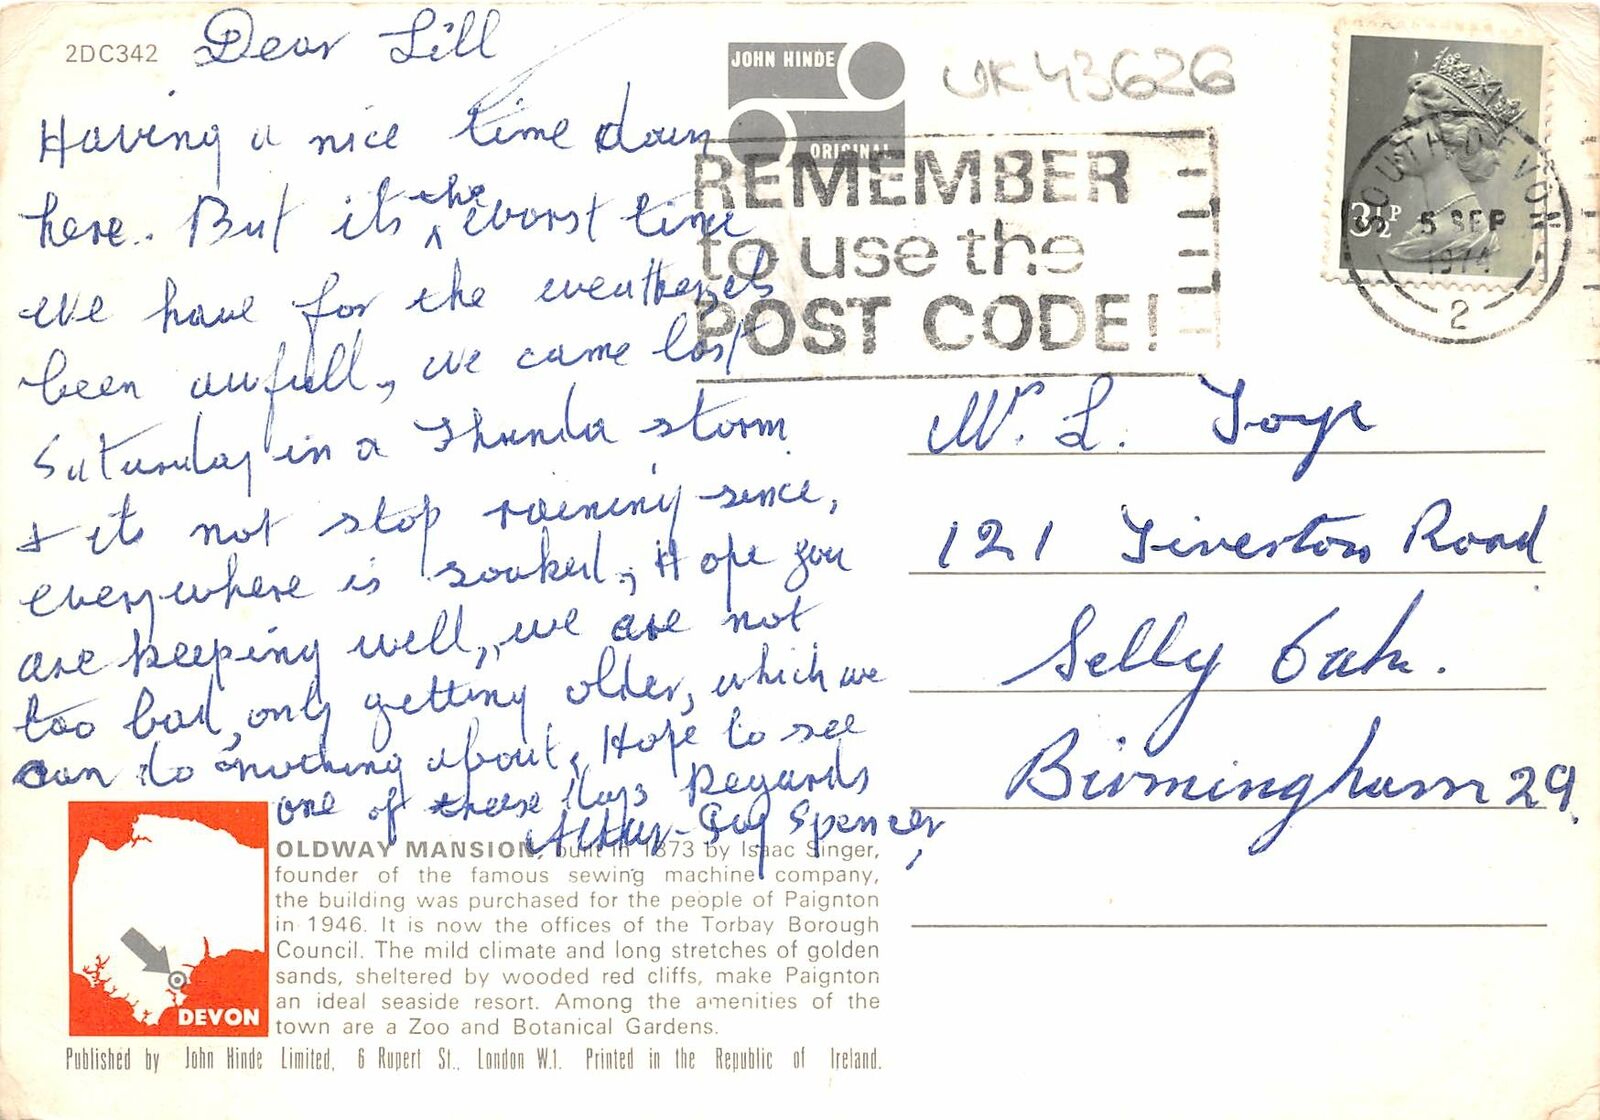 2DC342
Dear Lill
Having a nice time down
here. But its the worst time
we have for the weathers
been awfull, we came last
Saturday in a Thunda storm
& its not stop raining since,
everywhere is soaked, Hope you
are keeping well, we are not
too bad, only getting older, which we
can do nothing about, Hope to see
one of these days Regards
Spencer
JOHN HINDE
ORIGINAL
UK43626
REMEMBER
to use the
POST CODE!
3½P
SOUTH DEVON
5 SEP
1974
2
Mr. L. Toye
121 Tiverton Road
Selly Oak.
Birmingham 29.
OLDWAY MANSION, built in 1873 by Isaac Singer,
founder of the famous sewing machine company,
the building was purchased for the people of Paignton
in 1946. It is now the offices of the Torbay Borough
Council. The mild climate and long stretches of golden
sands, sheltered by wooded red cliffs, make Paignton
an ideal seaside resort. Among the amenities of the
town are a Zoo and Botanical Gardens.
DEVON
Published by John Hinde Limited, 6 Rupert St., London W.1. Printed in the Republic of Ireland.